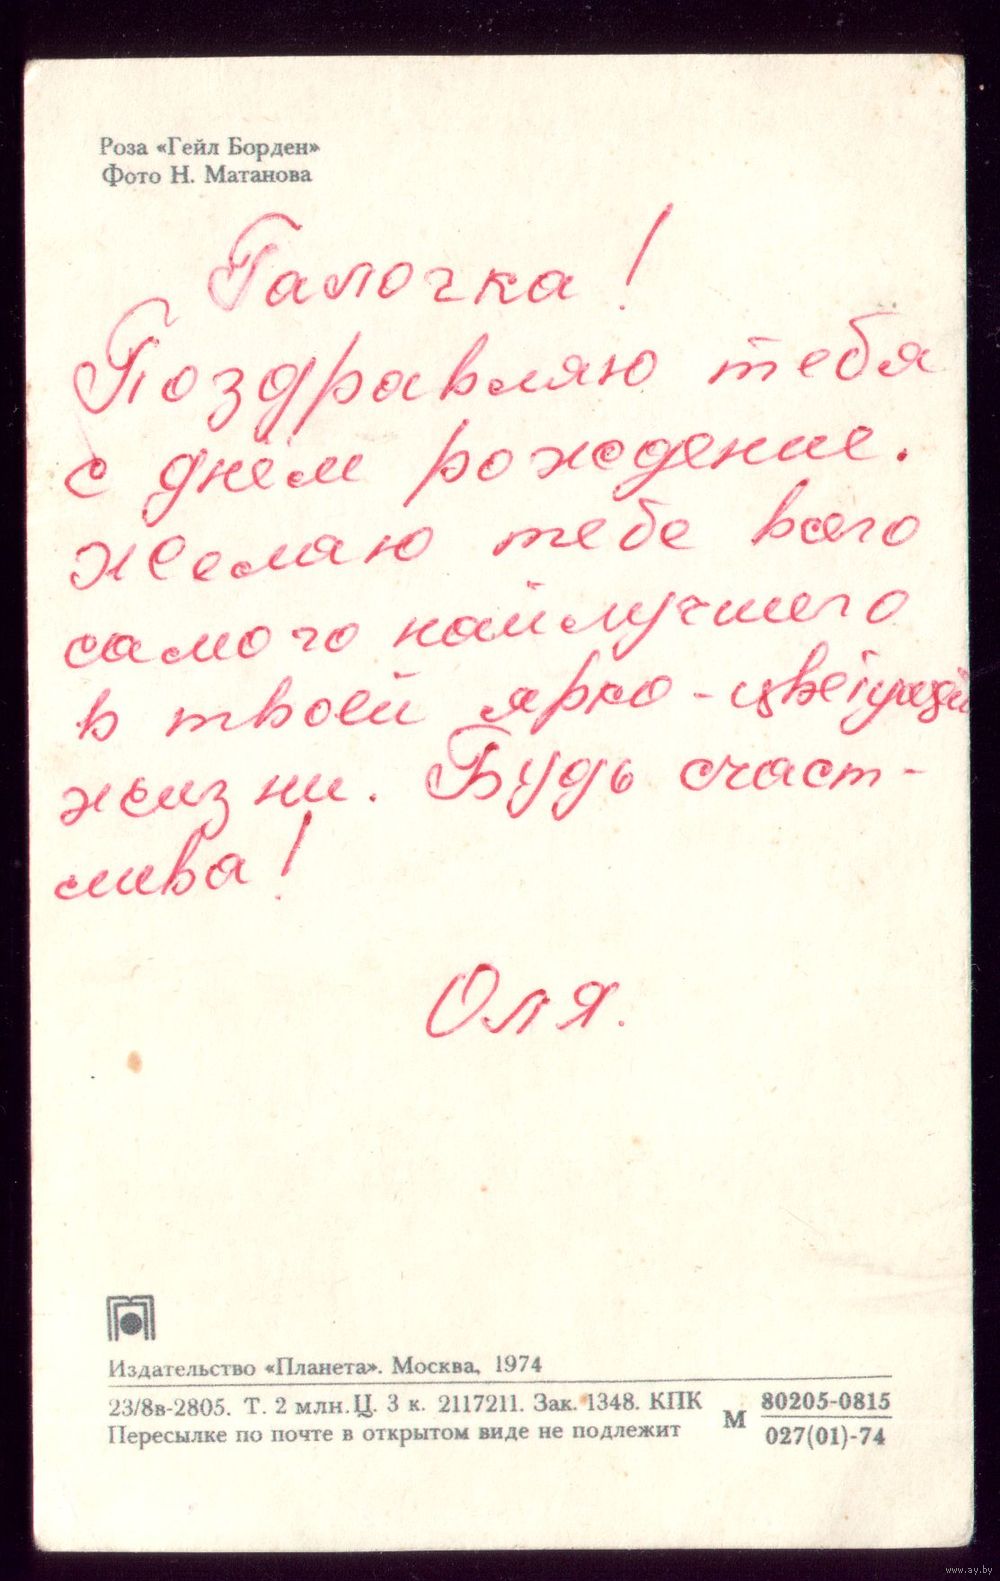 Роза «Гейл Борден»
Фото Н. Матанова
Галочка!
Поздравляю тебя
с днём рождение.
Желаю тебе всего
самого наилучшего
в твоей ярко-цветущей
жизни. Будь счаст-
лива!
Оля.
Издательство «Планета». Москва, 1974
23/8в-2805. Т. 2 млн. Ц. 3 к. 2117211. Зак. 1348. КПК
Пересылке по почте в открытом виде не подлежит
М 80205-0815
027(01)-74
www.ay.by